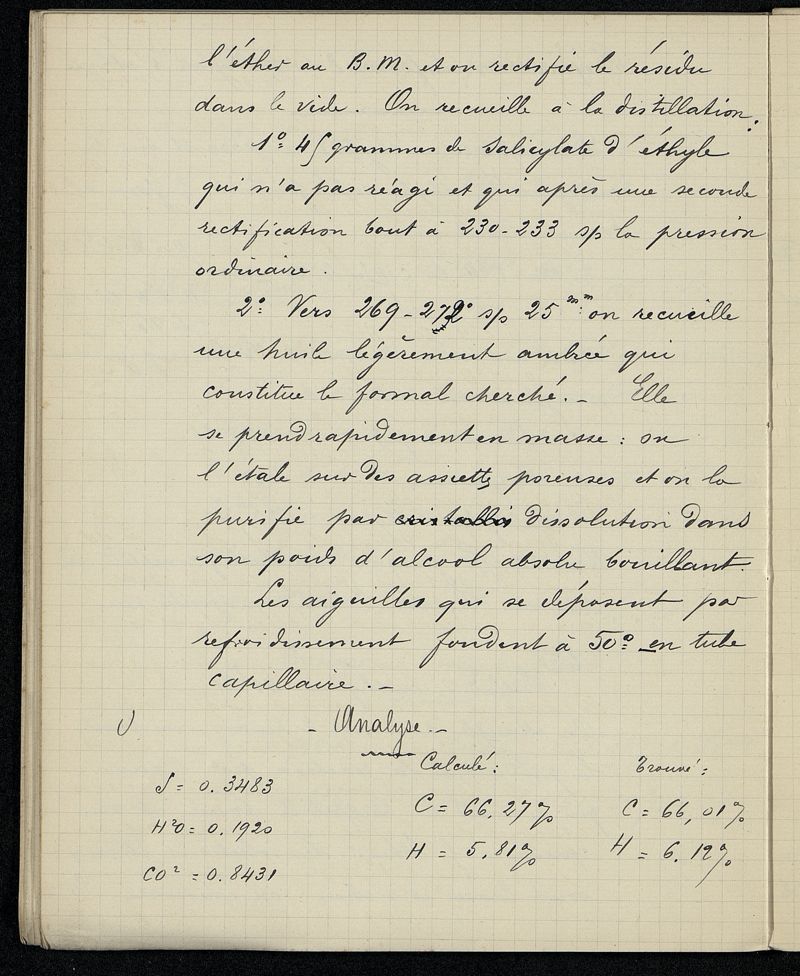 l'éther au B.M. et on rectifie le résidu
dans le vide. On recueille à la distillation:
1º 45 grammes de Salicylate d'éthyle
qui n'a pas réagi et qui après une seconde
rectification bout à 230-233 s/s la pression
ordinaire.
2º Vers 269-272º s/s 25 mm on recueille
une huile légèrement ambrée qui
constitue le formal cherché. - Elle
se prend rapidement en masse: on
l'étale sur des assiettes poreuses et on la
purifie par dissolution dans
son poids d'alcool absolu bouillant.
Les aiguilles qui se déposent par
refroidissement fondent à 50º en tube
capillaire. -
- Analyse. -
Calculé: Trouvé:
S = 0.3483
C = 66,27% C = 66,01%
H²O = 0.1920
H = 5.81% H = 6.12%
CO² = 0.8431